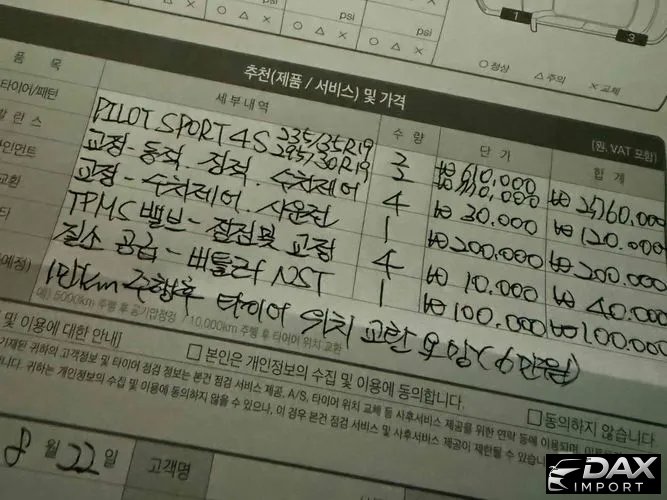 psi psi psi
○ △ × ○ △ × ○ △ ×
1 3
○ 정상 △ 주의 × 교체
추천(제품 / 서비스) 및 가격
품 목 세부내역 수 량 단 가 합 계
(원, VAT 포함)
타이어/패턴 PILOT SPORT 4S 235/35R19 2 ₩610,000
295/30R19 2 ₩2,760,000
교정-동적. 정적. 수치제어 4 ₩30,000 ₩120,000
교정-수치제어. 시운전 1 ₩200,000 ₩200,000
TPMS 밸브-점전 및 교정 4 ₩10,000 ₩40,000
질소 공급-버틀러 NST 1 ₩100,000 ₩100,000
1만km 주행후 타이어 위치 교환 요망(6만원)
예) 5000km 주행 후 공기압점검 / 10,000km 주행 후 타이어 위치 교환
및 이용에 대한 안내]
□ 본인은 개인정보의 수집 및 이용에 동의합니다.
□ 동의하지 않습니다
기재된 귀하의 고객정보 및 타이어 점검 정보는 본건 점검 서비스 제공, A/S, 타이어 위치 교체 등 사후서비스 제공을 위한 연락 등에 이용되며,
니다. 귀하는 개인정보의 수집 및 이용에 동의하지 않을 수 있으나, 이 경우 본건 점검 서비스 및 사후서비스 제공이 제한될 수 있습
8 월 22 일 고객명
DAX
IMPORT